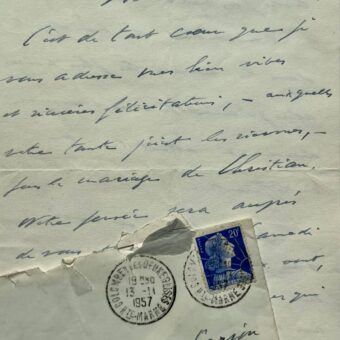 C'est de tout cœur que je
vous adresse mes bien vives
et sincères félicitations, – auxquelles
votre tante joint les siennes, –
pour le mariage de Christian.
Notre pensée sera auprès
de vous samedi
20F
COLOMBEY-LES-DEUX-EGLISES
13 -11
1957
HTE-MARNE
vont,